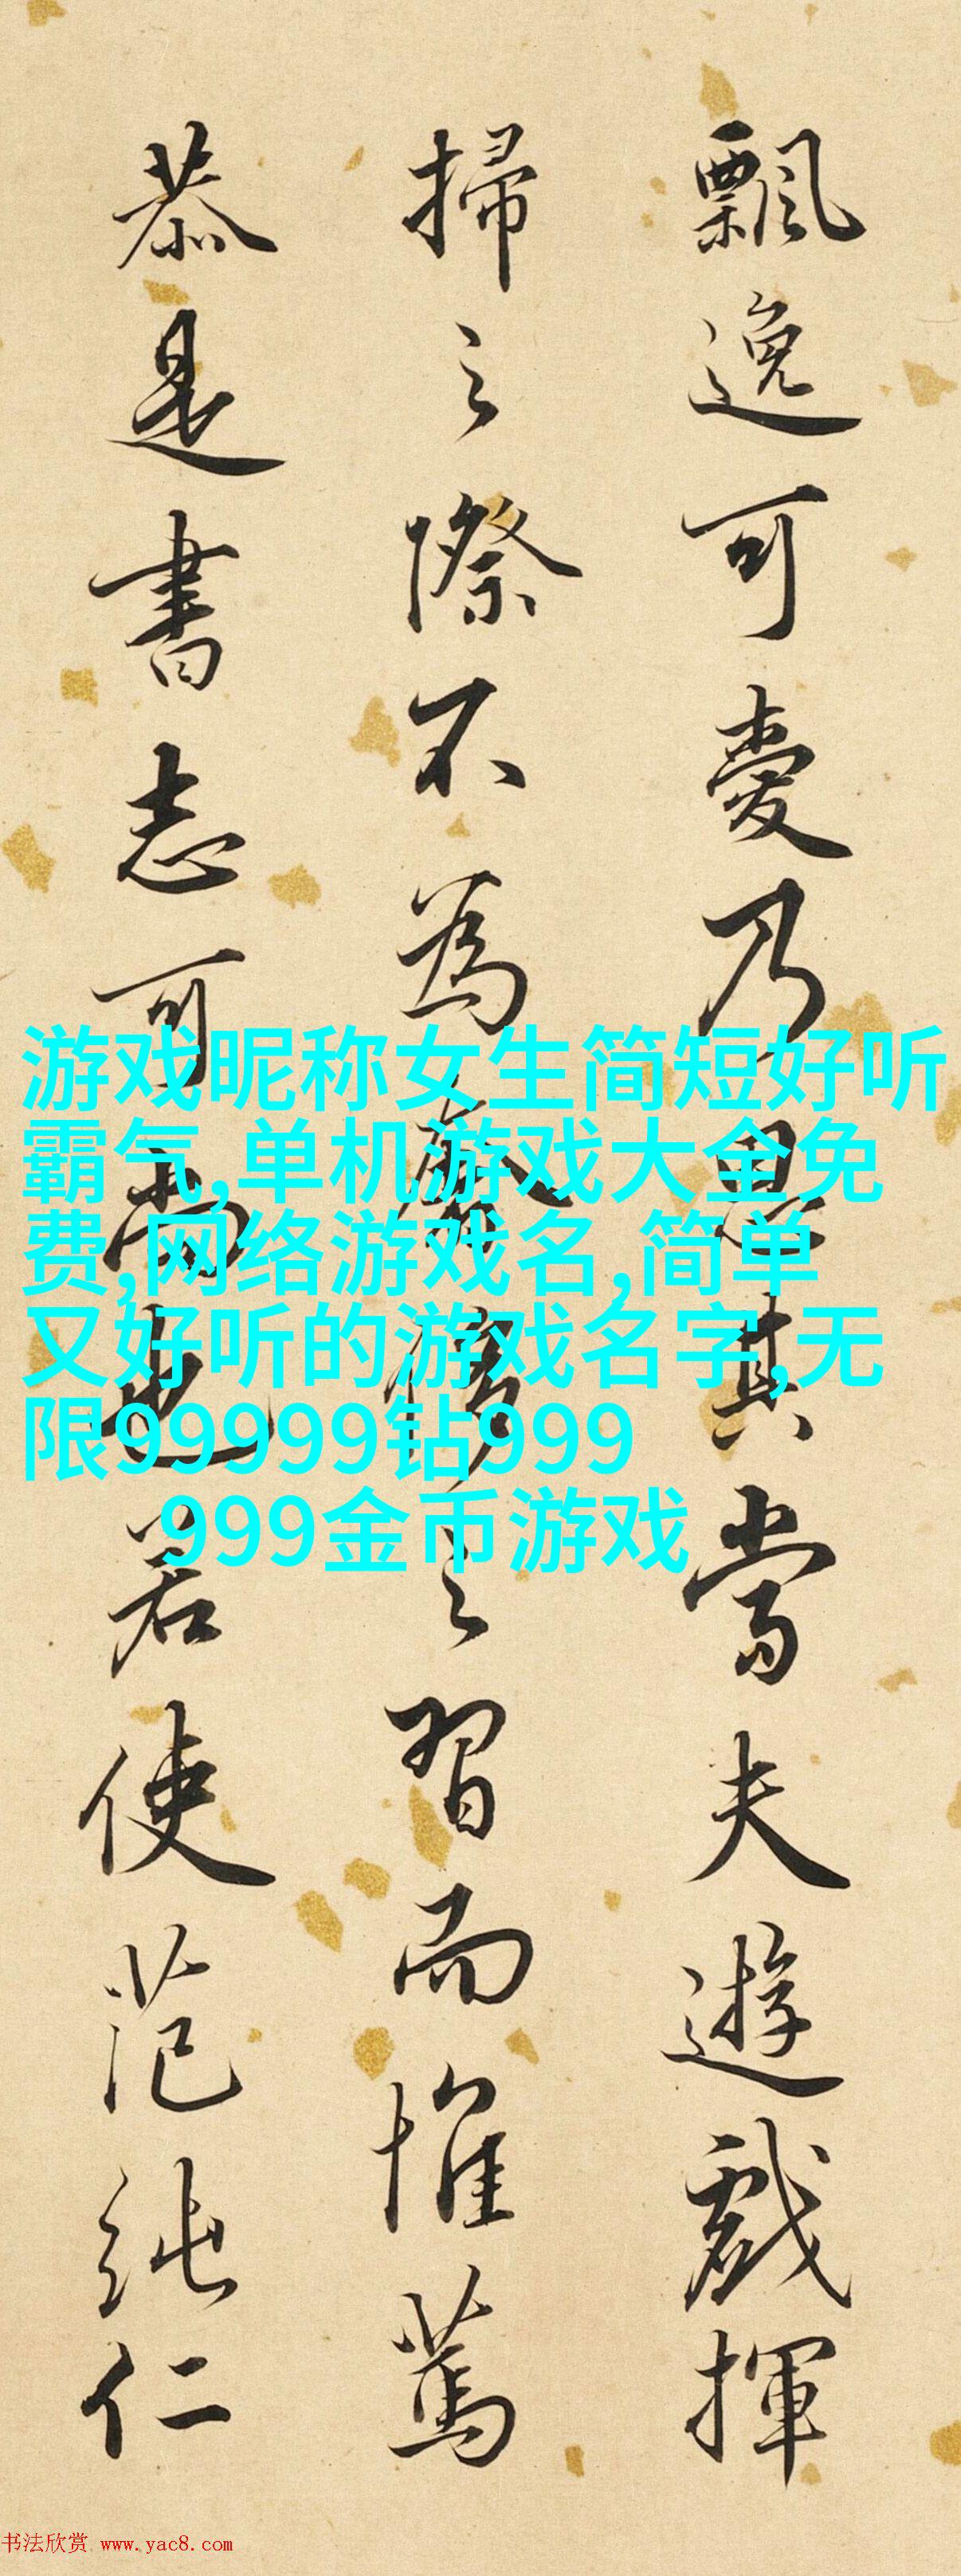 飄逸可愛乃思其當夫遊戲揮
掃之際不為之習而惟篤
恭是書志可尚也若使范純仁
游戏昵称女生简短好听
霸气,单机游戏大全免
费,网络游戏名,简单
又好听的游戏名字,无
限99999钻999
999金币游戏
书法欣赏 www.yac8.com